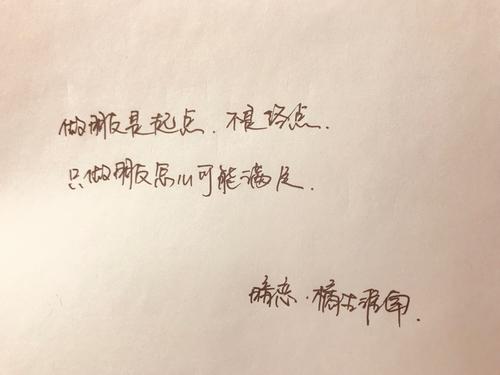 做朋友是起点.不是终点.
只做朋友怎么可能满足.
暗恋.橘生淮南.